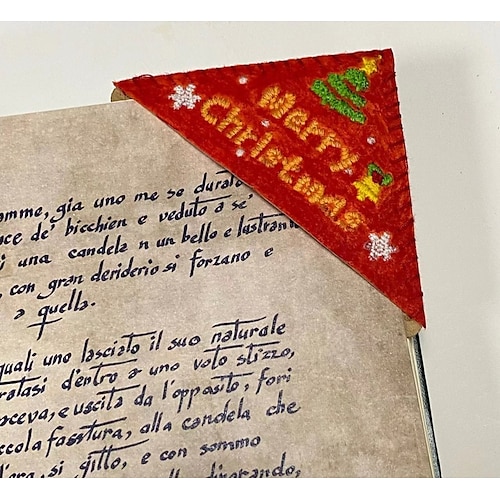 Merry
Christmas
amme, gia uno me se durate
uce de' bicchien e veduto a se'
i una candela n un bello e lustrante
, con gran deriderio si forzano e
a quella.
quali uno lasciato il suo naturale
ratasi d'entro a uno voto stizzo,
aceva, e uscita da l'opposito, fori
ccola fasstura, alla candela che
l'era, si gitto, e con sommo